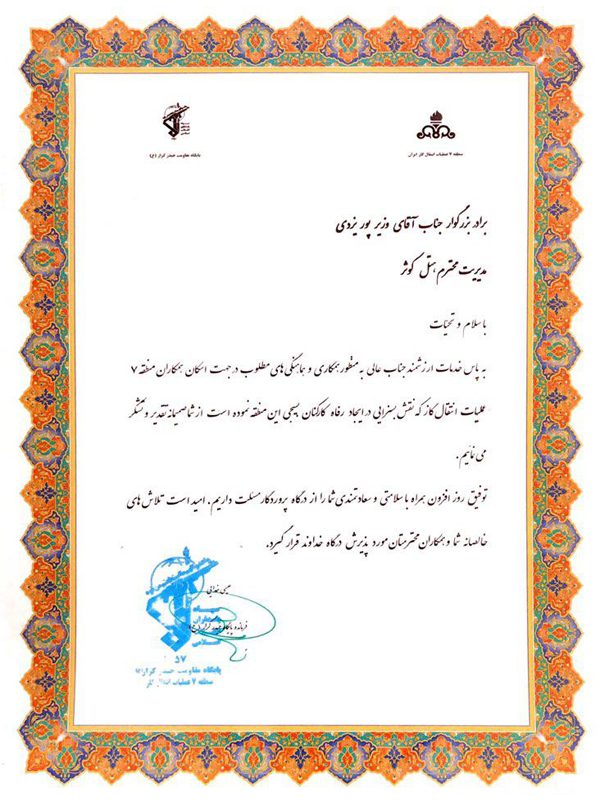 منطقه ۷ عملیات انتقال گاز ایران
پایگاه مقاومت حیدر کرار (ع)
برادر بزرگوار جناب آقای وزیر پور یزدی
مدیریت محترم هتل کوثر
با سلام و تحیّات
به پاس خدمات ارزشمند جناب عالی به منظور همکاری و هماهنگی های مطلوب در جهت اسکان همکاران منطقه ۷
عملیات انتقال گاز که نقش بسزایی در ایجاد رفاه کارکنان بسیجی این منطقه نموده است از شما صمیمانه تقدیر و تشکر
می نمائیم.
توفیق روز افزون همراه با سلامتی و سعادتمندی شما را از درگاه پروردگار مسئلت داریم. امید است تلاش های
خالصانه شما و همکاران محترمتان مورد پذیرش درگاه خداوند قرار گیرد.
فرمانده پایگاه حیدر کرار (ع)
۵۷
پایگاه مقاومت حیدر کرار
منطقه ۷ عملیات انتقال گاز